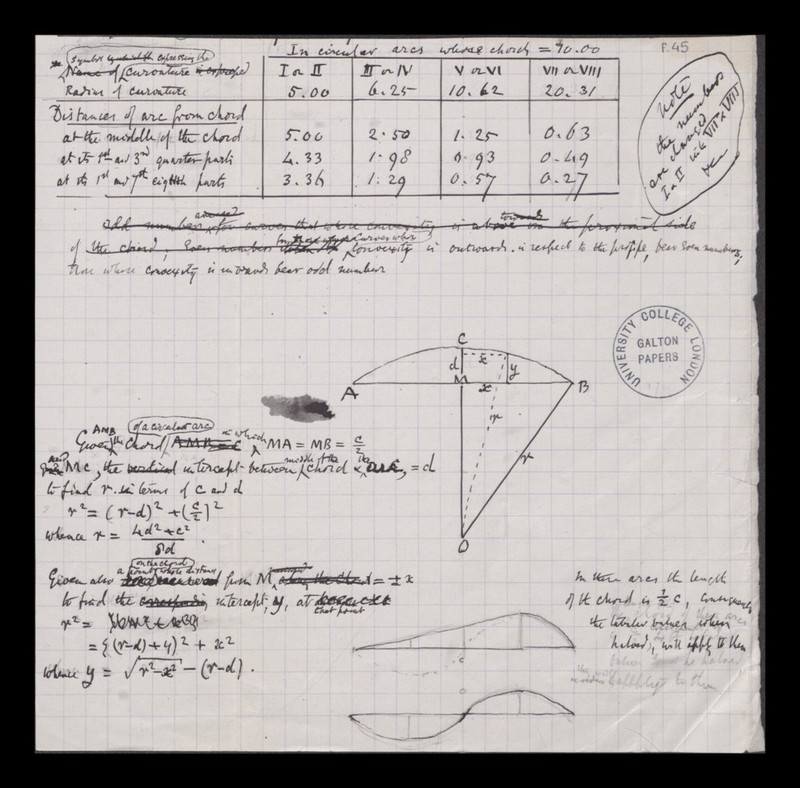 In circular arcs whose chord = 10.00
P. 45
Symbol expressing the
Name of Curvature
I or II III or IV V or VI VII or VIII
Radius of curvature 5.00 6.25 10.62 20.31
Distances of arc from chord
at the middle of the chord 5.00 2.50 1.25 0.63
at its 1st and 3rd quarter parts 4.33 1.98 0.93 0.49
at its 1st and 7th eighth parts 3.36 1.29 0.57 0.27
Note
the numbers
are changed
I & II with VII & VIII
odd number for curves that whose convexity is towards the proximal side
of the chord, Even number Curves whose convexity is outwards in respect to the profile, bear Even numbers,
those whose convexity is inwards bear odd numbers
UNIVERSITY COLLEGE LONDON
GALTON
PAPERS
C
d x y
A M x B
r r
O
AMB of a circular arc in which
Given the chord AMB = c, MA = MB = c/2
and MC, the vertical intercept between middle of the chord & the arc, = d
to find r in terms of c and d
r² = (r-d)² + (c/2)²
whence r = 4d² + c² / 8d .
on the chord
a point whose distance
Given also from M = ± x
to find the intercept, y, at that point
r² =
= {(r-d) + y}² + x²
whence y = √r²-x² - (r-d) .
In these arcs the length
of the chord is ½ c, consequently
the tabular values when
halved, will apply to them